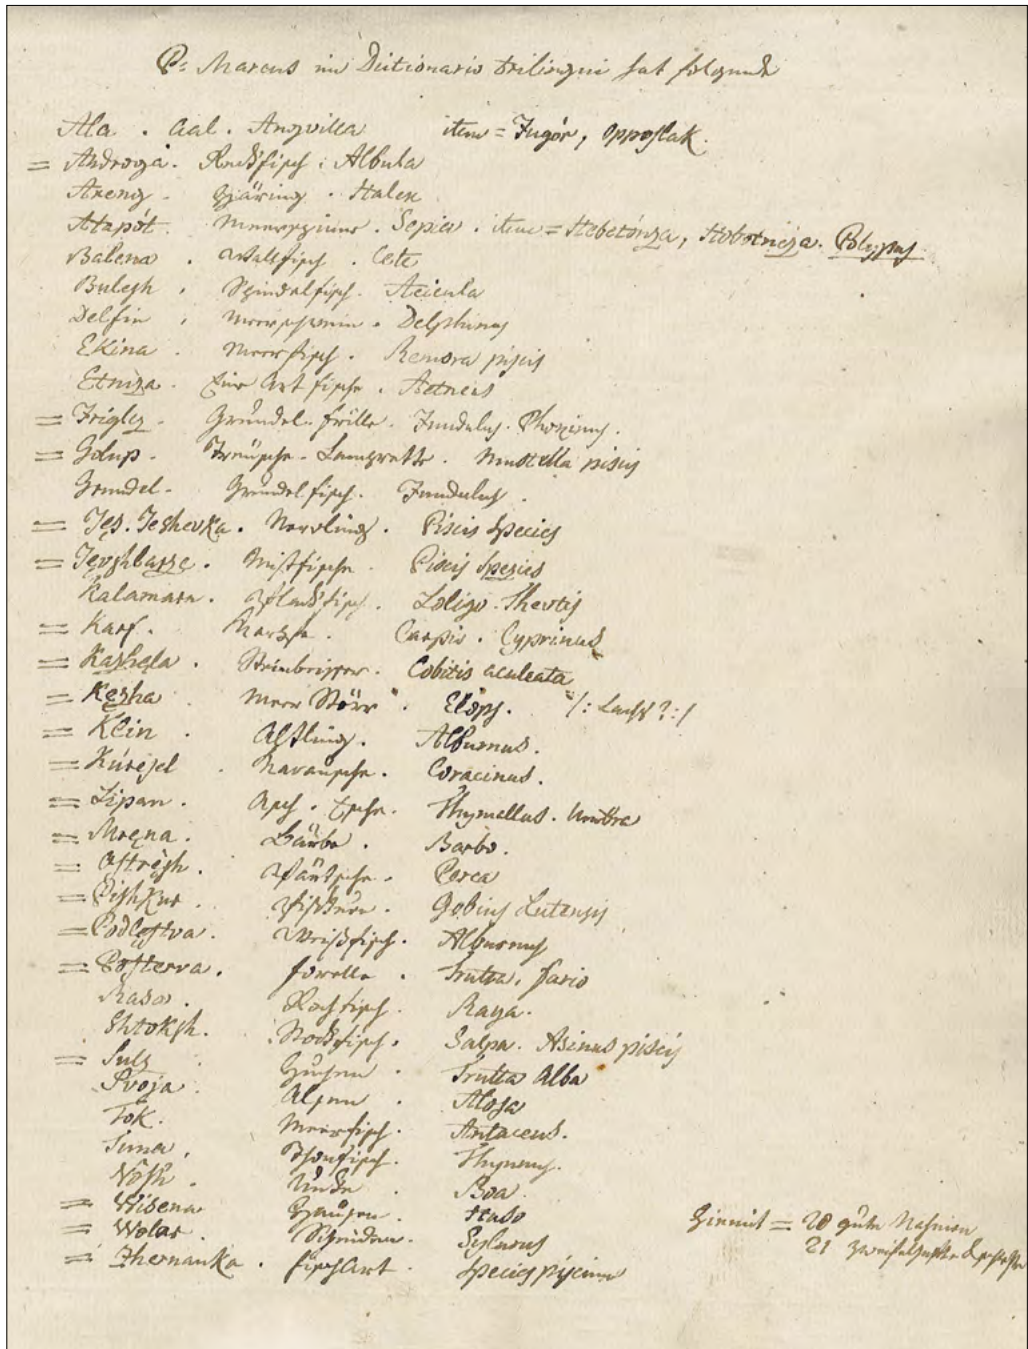 P: Marcus in Dictionario trilingui hat folgende
Ala . Aal . Angvilla item = Jugór, oppoſlak.
= Androga . : Albula
Areng . Häring . Halex
Atapót . . Sepia . item = Hobotniza . Polypus
Balena . Wallfisch . Cete
Bulesh . Spindelfisch . Acicula
Delfin . Meerschwein . Delphinus
Ekina . Meerfisch . Remora piscis
Etniza . Eine Art Fische . Aetneus
= Frigley . Grundel . Frille . Fundulus . Phoxinus .
= Golup . Treüsche . Lamprette . Mustella piscis
Grundel . Grundelfisch . Fundulus .
= Jes . Jeshevka . Nerfling . Piscis Species
= . Mistfische . Piscis Species
Kalamara . Blackfisch . Loligo . Thevtis
= Karf . Karpfe . Carpio . Cyprinus
= Kashela . Steinbeisser . Cobitis aculeata
= Kezha . Meer Störr . Elops . /: Lachs ? :/
= Klin . Altling . Alburnus .
= Kúresel . Karausche . Coracinus .
= Lipan . Asch . Esche . Thymallus . Umbra
= Mrena . Bärbe . Barbo .
= Oſtrésh . . Perca
= Pishkur . Pißkure . Gobius Lutensis
= Podleſtva . Weisfisch . Alburnus
= Poſterva . Forelle . Trutta . Fario
Raza . Rochfisch . Raya .
Shtokſh . Stockfisch . Salpa . Asinus piscis
= Sulz . Huchen . Trutta Alba
Svoja . Alsen . Alosa
Tok . Meerfisch . Antaceus .
Tuna . Thonfisch . Thynnus .
Vósh . Unke . Boa
= Wisena . Hausen . Huso
= Wolar . Scheiden . Sylurus
= Zhernanka . Fisch Art . Species piscium
Hiemit = 20 gute Nahmen
21 zweifelhafte